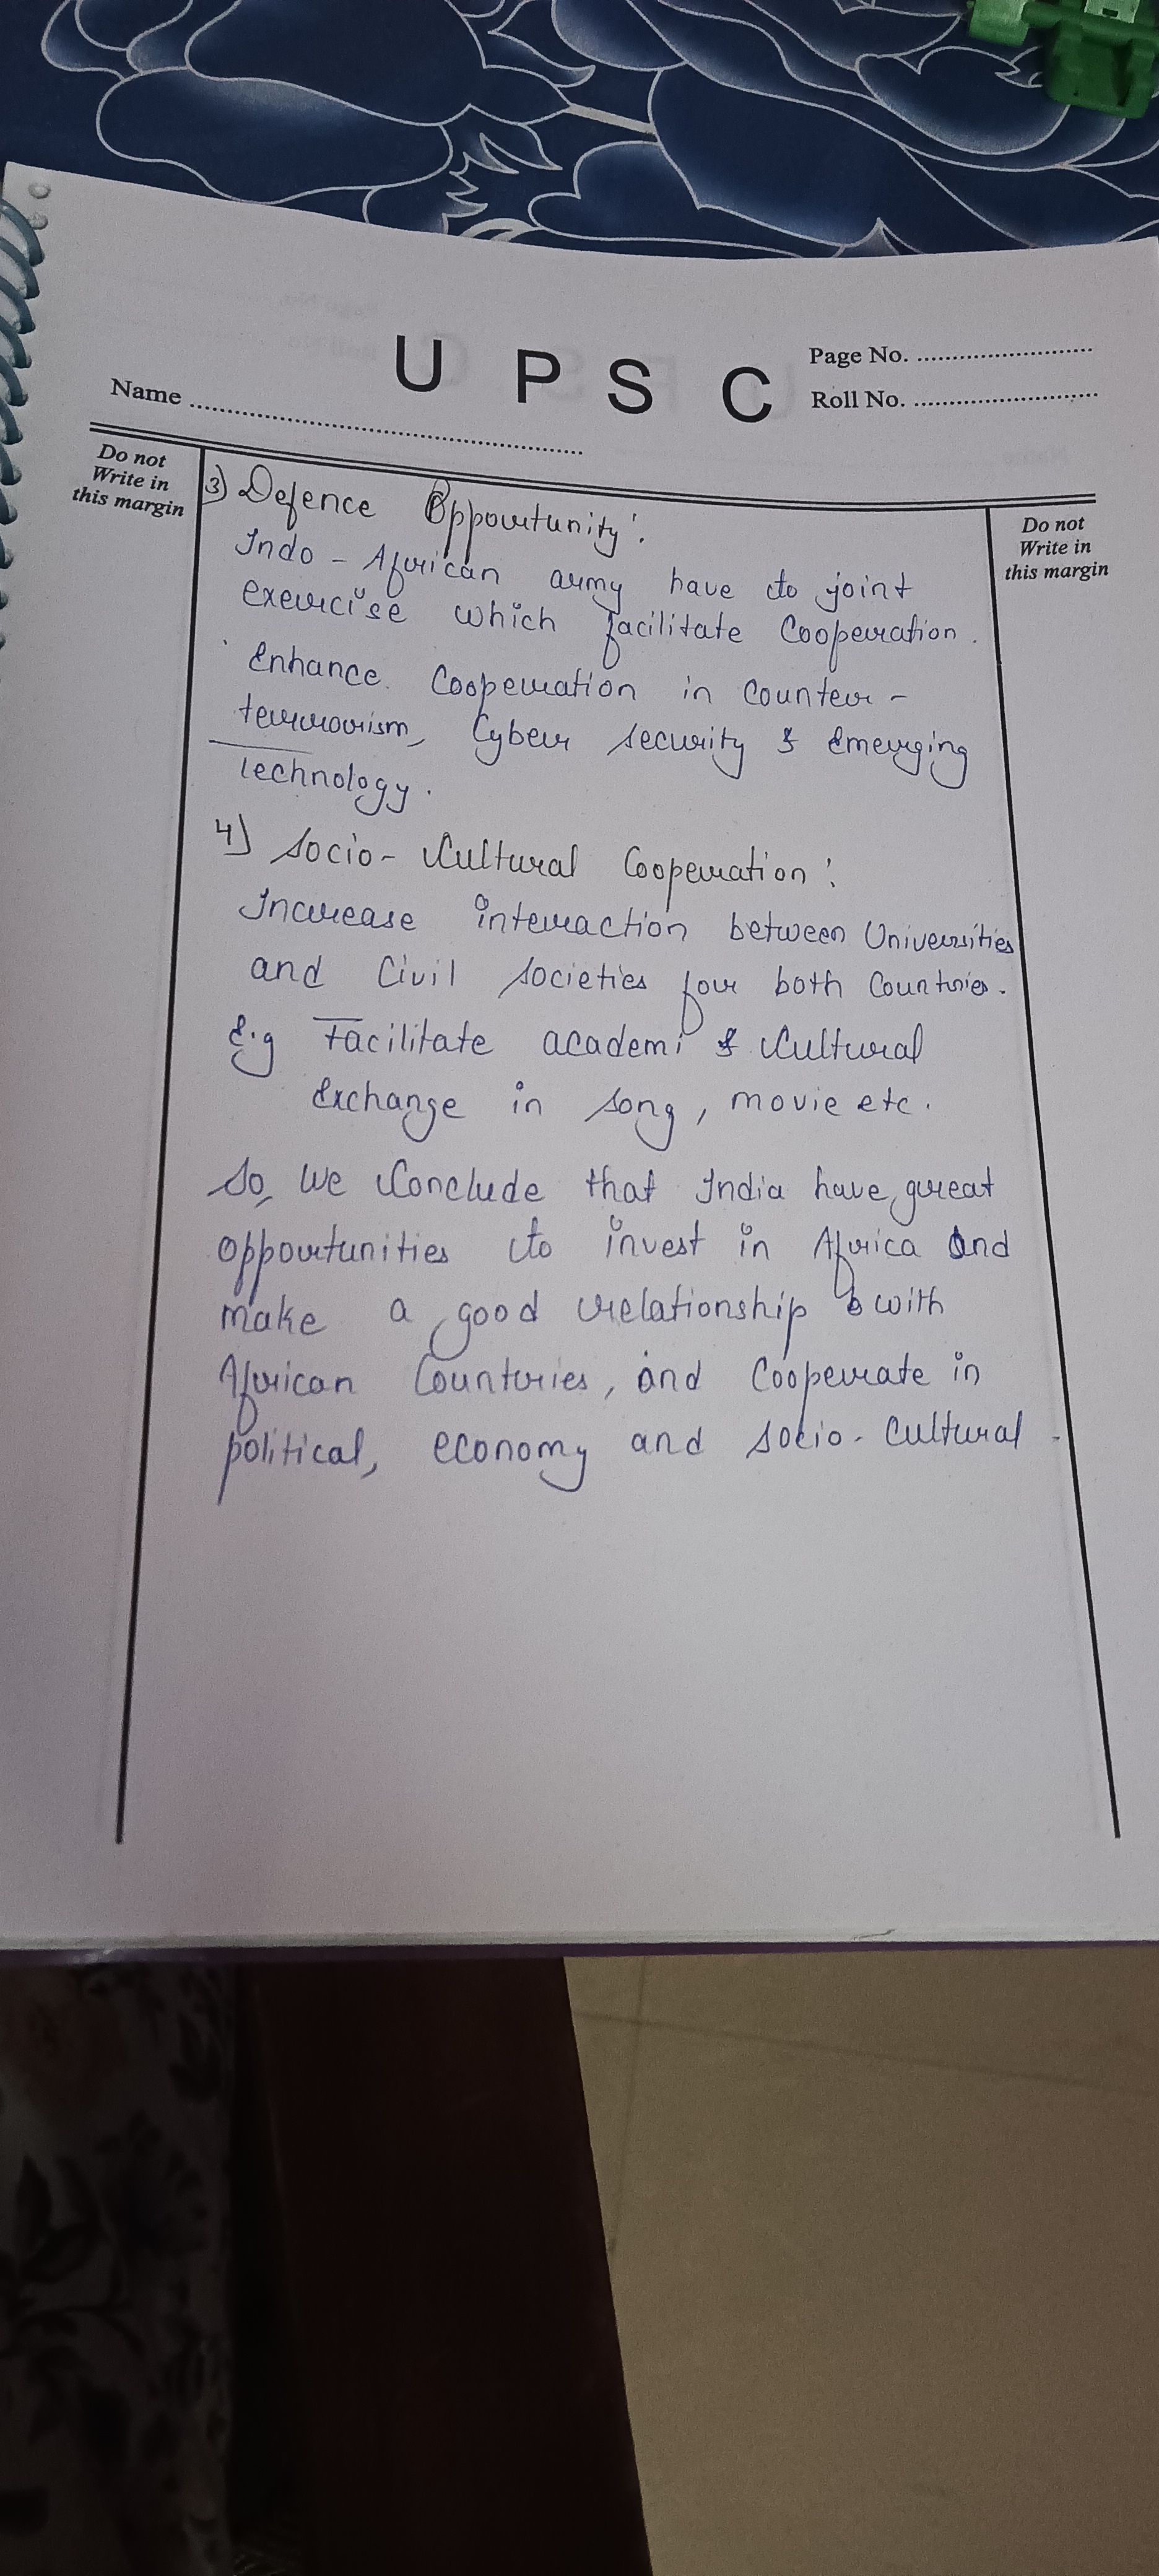 U P S C
Page No. ..............................
Roll No. ..............................
Name ..............................
Do not
Write in
this margin
Do not
Write in
this margin
3) Defence Opportunity:
Indo - African army have to joint
exercise which facilitate Cooperation.
Enhance Cooperation in Counter -
terrorism, Cyber security & emerging
Technology.
4) Socio- Cultural Cooperation:
Increase interaction between Universities
and Civil societies for both Countries.
E.g Facilitate academi & Cultural
Exchange in song, movie etc.
So, We Conclude that India have great
opportunities to invest in Africa and
make a good relationship with
African Countries, and Cooperate in
political, economy and socio- Cultural.